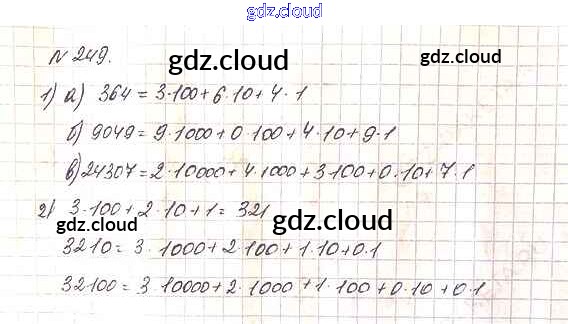 gdz.cloud
№ 249.
gdz.cloud
1) а) 364 = 3·100+6·10+4·1
б) 9049 = 9·1000+0·100+4·10+9·1
gdz.cloud
в) 24307 = 2·10000+4·1000+3·100+0·10+7·1
2) 3·100+2·10+1 = 321
gdz.cloud
3210 = 3·1000+2·100+1·10+0·1
32100 = 3·10000+2·1000+1·100+0·10+0·1